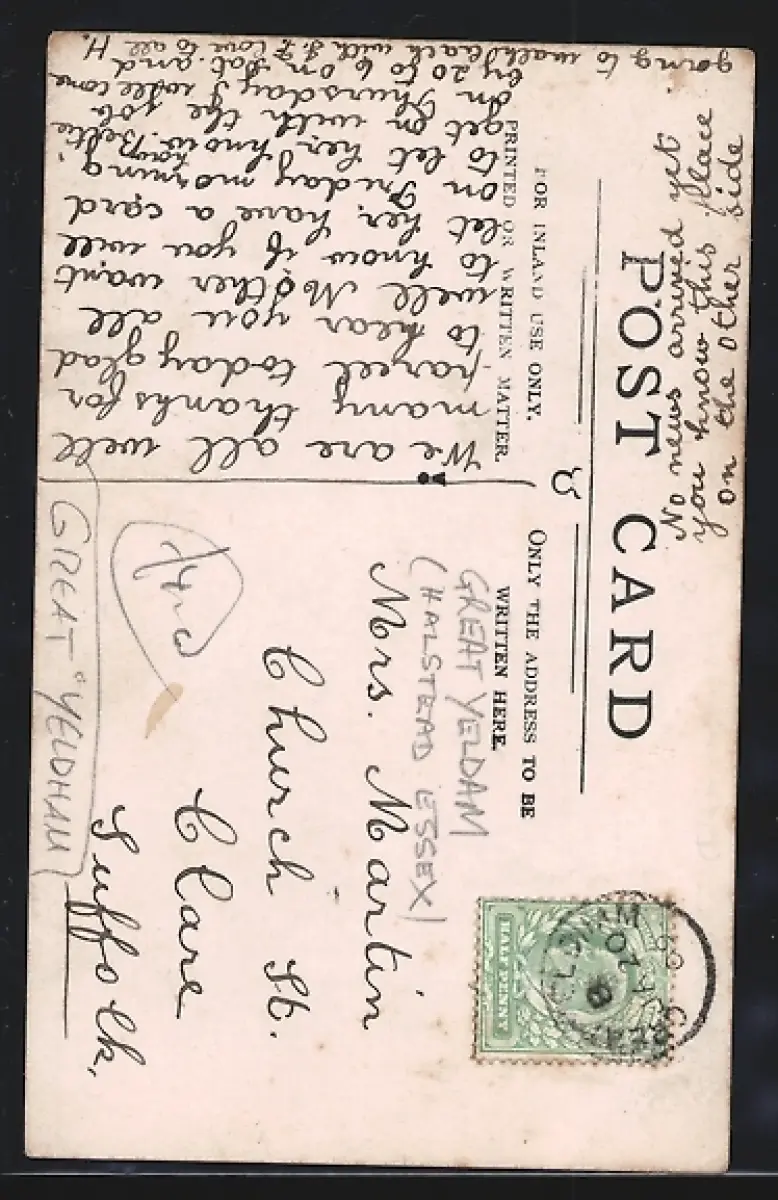 POST CARD
FOR INLAND USE ONLY.
PRINTED OR WRITTEN MATTER.
ONLY THE ADDRESS TO BE
WRITTEN HERE.
We are all well
many thanks for
parcel today glad
to hear you all
well Mother want
to know if you will
let her have a card
on Friday morning
to let her know how Bettie
get on with the job
on Thursday I will come
by 20 to 6 on Sat. and H.
going to walk back with I. F love to all
No news arrived yet
you know this place
on the other side
Mrs. Martin
Church St.
Clare
Suffolk.
GREAT YELDAM
(HALSTEAD ESSEX)
GREAT "YELDHAM
HALF PENNY
GREAT YELDHAM